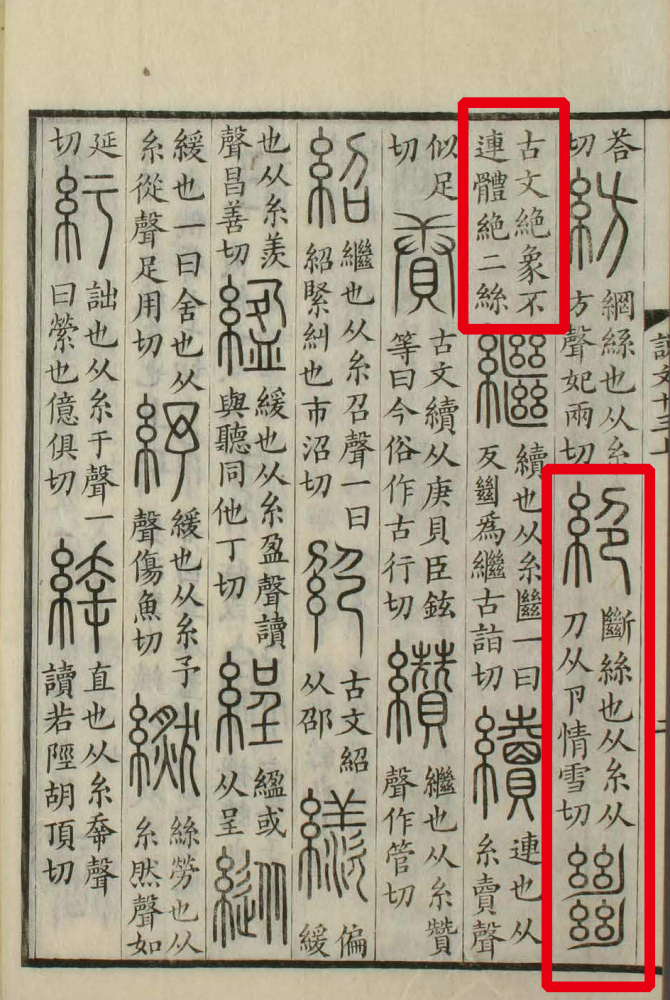 說文十三上
荅
切
紡
網絲也从糸
方聲妃兩切
絕
斷絲也从糸从
刀从卪情雪切
𢇍
古文絕象不
連體絕二絲
繼
續也从糸㡭一曰
反𢇍爲繼古詣切
續
連也从
糸賣聲
似足
切
賡
古文續从庚貝臣鉉
等曰今俗作古行切
纘
繼也从糸贊
聲作管切
紹
繼也从糸召聲一曰
紹緊糾也市沼切
古文紹
从邵
偏
緩
也从糸羨
聲昌善切
緩也从糸盈聲讀
與聽同他丁切
或
从呈
縱
緩也一曰舍也从
糸從聲足用切
紓
緩也从糸予
聲傷魚切
繎
絲勞也从
糸然聲如
延
切
紆
詘也从糸于聲一
曰縈也億俱切
緈
直也从糸㚔聲
讀若陘胡頂切